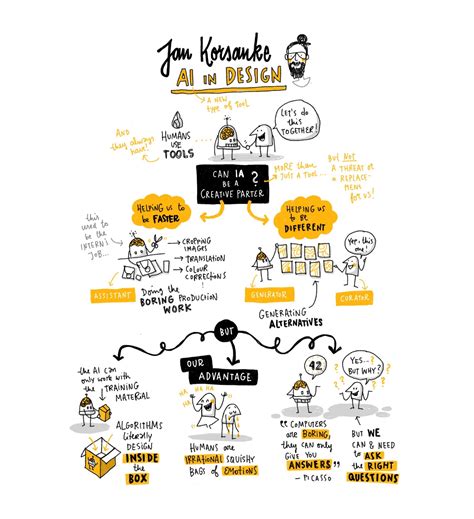 Jan Korsanke
AI IN DESIGN
A NEW
type OF TOOL
LET'S do
this
TOGETHER!
AND
they always
have!
HUMANS
USE
TOOLS
CAN IA
BE A
CREATIVE PARTER
?
MORE than
JUST A TOOL...
BUT NOT
A THREAT or
A REPLACE-
MENT
FOR US!
HELPING US to
be FASTER
HELPING US
to BE
DIFFERENT
this
USED to
be the
INTERN'S
JOB...
CROPPING
IMAGES
TRANSLATION
COLOUR
CORRECTIONS!
Yes, this
one!
ASSISTANT
Doing the
BORING PRODUCTION
WORK
GENERATOR
CURATOR
GENERATING
ALTERNATIVES
BUT
the AI can
only work with
the TRAINING
MATERIAL
ALGORITHMS
literally
DESIGN
INSIDE
the
BOX
OUR
ADVANTAGE
HA HA
HA
HUMANS are
IRRATIONAL squishy
BAGS of EMOTIONS
42
YES...
BUT WHY?
? ? ? ?
"COMPUTERS
are BORING,
they CAN ONLY
GIVE YOU
ANSWERS"
- PICASSO
BUT WE
CAN & NEED
to ASK
the RIGHT
QUESTIONS